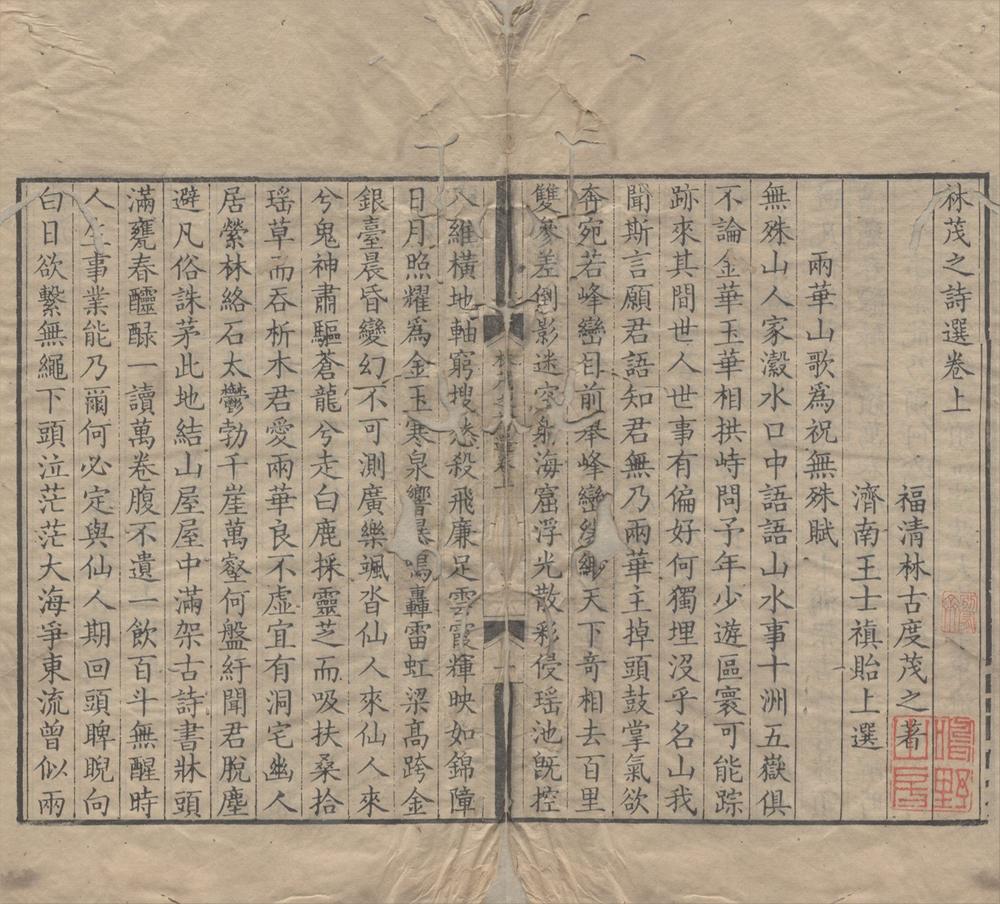 林茂之詩選卷上
福清林古度茂之著
濟南王士禛貽上選
兩華山歌為祝無殊賦
無殊山人家瀫水口中語語山水事十洲五嶽俱
不論金華玉華相拱峙問子年少遊區寰可能踪
跡來其間世人世事有偏好何獨埋沒乎名山我
聞斯言願君語知君無乃兩華主掉頭鼓掌氣欲
奔宛若峰巒目前峰巒天下奇相去百里
雙參差倒影迷空射海窟浮光散彩侵瑤池旣控
八維橫地軸窮搜愁殺飛廉足雲霞輝映如錦障
日月照耀爲金玉寒泉響瀑鳴轟雷虹梁髙跨金
銀臺晨昏變幻不可測廣樂颯沓仙人來仙人來
兮鬼神肅驅蒼龍兮走白鹿採靈芝而吸扶桑拾
瑶草而吞析木君愛兩華良不虛宜有洞宅幽人
居縈林絡石太鬱勃千崖萬壑何盤紆聞君脫塵
避凡俗誅茅此地結山屋屋中滿架古詩書牀頭
滿甕春醽醁一讀萬卷腹不遺一飲百斗無醒時
人生事業能乃爾何必定與仙人期回頭睥睨向
白日欲繫無繩下頭泣茫茫大海爭東流曾似兩